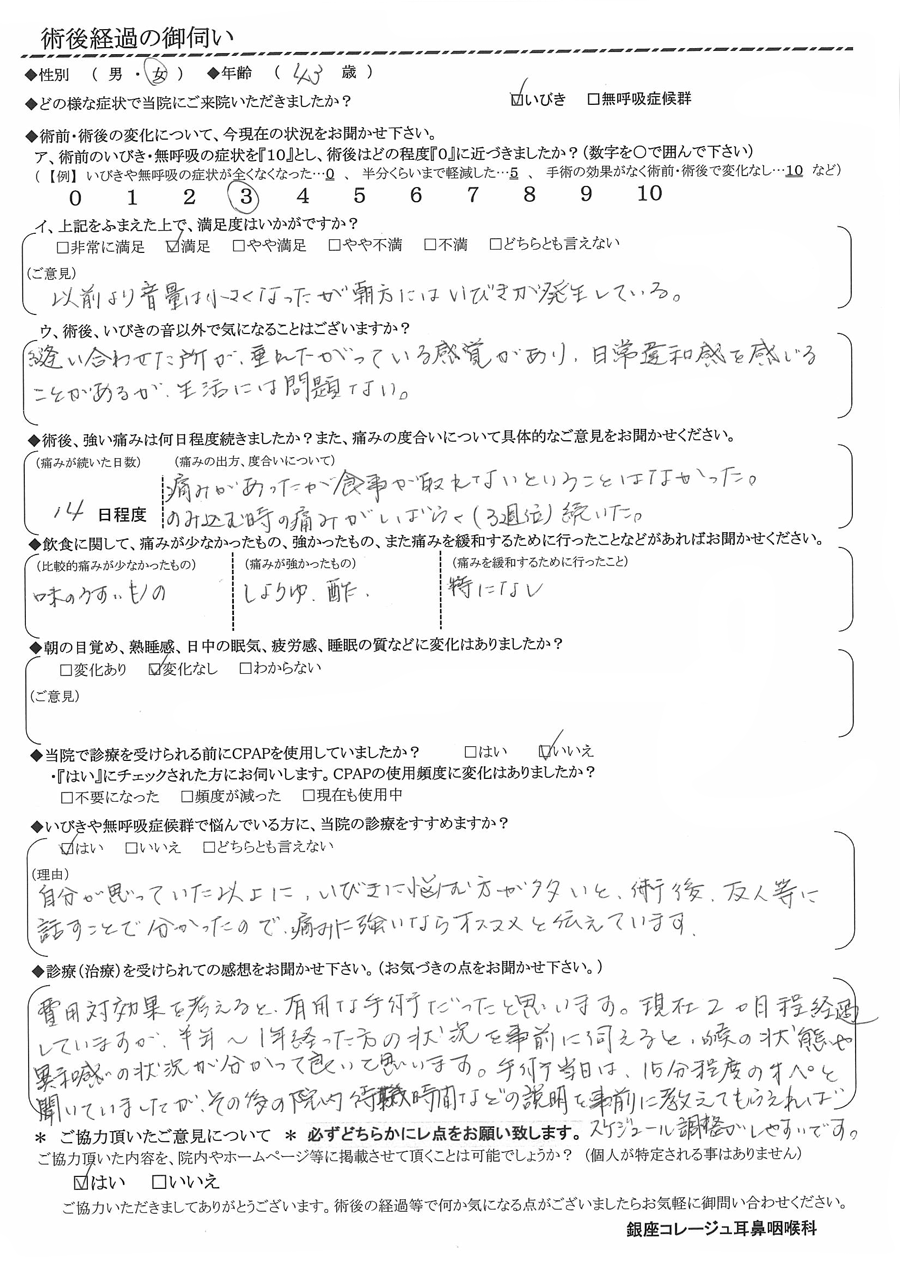 術後経過の御伺い
◆性別 （ 男 ・ 女 ） ◆年齢 （ 43 歳 ）
◆どの様な症状で当院にご来院いただきましたか？ ☑いびき □無呼吸症候群
◆術前・術後の変化について、今現在の状況をお聞かせ下さい。
ア、術前のいびき・無呼吸の症状を『10』とし、術後はどの程度『0』に近づきましたか？（数字を○で囲んで下さい）
（【例】いびきや無呼吸の症状が全くなくなった…0 、 半分くらいまで軽減した…5 、 手術の効果がなく術前・術後で変化なし…10 など）
0 1 2 3 4 5 6 7 8 9 10
イ、上記をふまえた上で、満足度はいかがですか？
□非常に満足 ☑満足 □やや満足 □やや不満 □不満 □どちらとも言えない
（ご意見）
以前より音量は小さくなったが朝方にはいびきが発生している。
ウ、術後、いびきの音以外で気になることはございますか？
縫い合わせた所が、垂れたがっている感覚があり、日常違和感を感じる
ことがあるが、生活には問題ない。
◆術後、強い痛みは何日程度続きましたか？また、痛みの度合いについて具体的なご意見をお聞かせください。
（痛みが続いた日数） （痛みの出方、度合いについて）
痛みがあったが食事が取れないということはなかった。
14 日程度 のみ込む時の痛みがしばらく（3週位）続いた。
◆飲食に関して、痛みが少なかったもの、強かったもの、また痛みを緩和するために行ったことなどがあればお聞かせください。
（比較的痛みが少なかったもの） （痛みが強かったもの） （痛みを緩和するために行ったこと）
味のうすいもの しょうゆ、酢、 特になし
◆朝の目覚め、熟睡感、日中の眠気、疲労感、睡眠の質などに変化はありましたか？
□変化あり ☑変化なし □わからない
（ご意見）
◆当院で診療を受けられる前にCPAPを使用していましたか？ □はい ☑いいえ
・『はい』にチェックされた方にお伺いします。CPAPの使用頻度に変化はありましたか？
□不要になった □頻度が減った □現在も使用中
◆いびきや無呼吸症候群で悩んでいる方に、当院の診療をすすめますか？
☑はい □いいえ □どちらとも言えない
（理由）
自分が思っていた以上に、いびきに悩む方が多いと、術後、友人等に
話すことで分かったので、痛みに強いならオススメと伝えています。
◆診療（治療）を受けられての感想をお聞かせ下さい。（お気づきの点をお聞かせ下さい。）
費用対効果を考えると、有用な手術だったと思います。現在2ヵ月程経過
していますが、半年～1年経った方の状況を事前に伺えると、喉の状態や
異和感の状況が分かって良いと思います。手術当日は、15分程度のオペと
聞いていましたが、その後の院内待機時間などの説明を事前に教えてもらえれば
スケジュール調整がしやすいです。
＊ ご協力頂いたご意見について ＊ 必ずどちらかにレ点をお願い致します。
ご協力頂いた内容を、院内やホームページ等に掲載させて頂くことは可能でしょうか？（個人が特定される事はありません）
☑はい □いいえ
ご協力いただきましてありがとうございます。術後の経過等で何か気になる点がございましたらお気軽に御問い合わせください。
銀座コレージュ耳鼻咽喉科